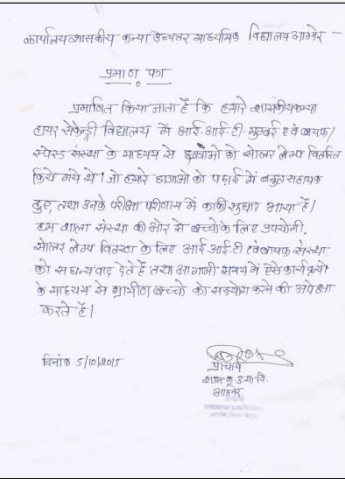 कार्यालय शासकीय कन्या उच्चतर माध्यमिक विद्यालय आमेर -
प्रमाण पत्र
प्रमाणित किया जाता है कि हमारे शासकीय कन्या
हायर सेकेन्ड्री विद्यालय में आई आई.टी. मुम्बई एवं बायफ/
संस्था के माध्यम से छात्राओं को सोलर लेम्प वितरित
किये गये थे। जो हमारे छात्राओं को पढाई में बहुत सहायक
हुए, तथा उनके परीक्षा परीणाम में काफी सुधार आया है।
हम शाला संस्था की ओर से बच्चों के लिए उपयोगी,
सोलर लेम्प वितरण के लिए आई आई टी एवं बायफ संस्था
को सधन्यवाद देते हैं तथा आगामी समय में ऐसे कार्यक्रमो
के माध्यम से ग्रामीण बच्चों को सहयोग करने की अपेक्षा
करते हैं।
दिनांक 5/10/2015
प्राचार्य